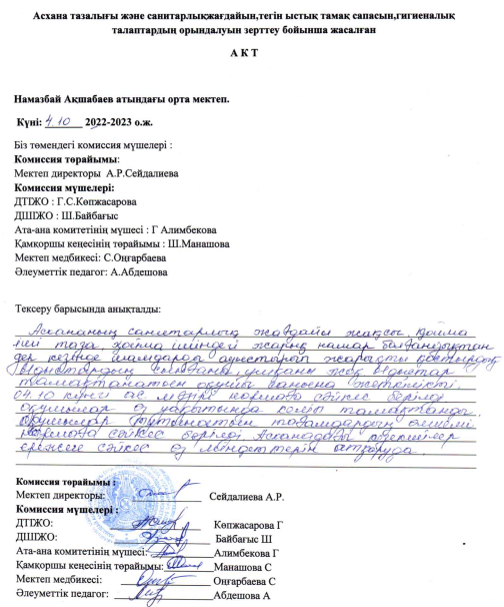 Асхана тазалығы және санитарлықжағдайын,тегін ыстық тамақ сапасын,гигиеналық
талаптардын орындалуын зерттеу бойынша жасалған
А К Т
Намазбай Ақшабаев атындағы орта мектеп.
Күні: 4.10 2022-2023 о.ж.
Біз төмендегі комиссия мүшелері :
Комиссия төрайымы:
Мектеп директоры А.Р.Сейдалиева
Комиссия мүшелері:
ДТІЖО : Г.С.Көпжасарова
ДШІЖО : Ш.Байбағыс
Ата-ана комитетінің мүшесі : Г Алимбекова
Қамқоршы кеңесінің төрайымы : Ш.Манашова
Мектеп медбикесі: С.Оңғарбаева
Әлеуметтік педагог: А.Абдешова
Тексеру барысында анықталды:
Асхананың санитарлық жағдайы жақсы, қойма
іші таза, қойма ішіндегі жарық нашар болғандықтан
дер кезінде шамдарды ауыстырып жарықты қостырдық
ыдыстардың жоқ ыдыстар
тамақтанатын оқушы санына жеткілікті.
04.10 күнгі ас мәзірі нормаға сәйкес берілді
оқушылар өз уақытында келіп тамақтанды.
Оқушылар тұтынатын тағамдардың өлшемі
нормаға сәйкес берілді. Асханадағы
ережеге сәйкес өз міндеттерін атқаруда.
Комиссия төрайымы :
Мектеп директоры: Сейдалиева А.Р.
Комиссия мүшелері :
ДТІЖО: Көпжасарова Г
ДШІЖО: Байбағыс Ш
Ата-ана комитетінің мүшесі: Алимбекова Г
Қамқоршы кеңесінің төрайымы: Манашова С
Мектеп медбикесі: Оңғарбаева С
Әлеуметтік педагог: Абдешова А